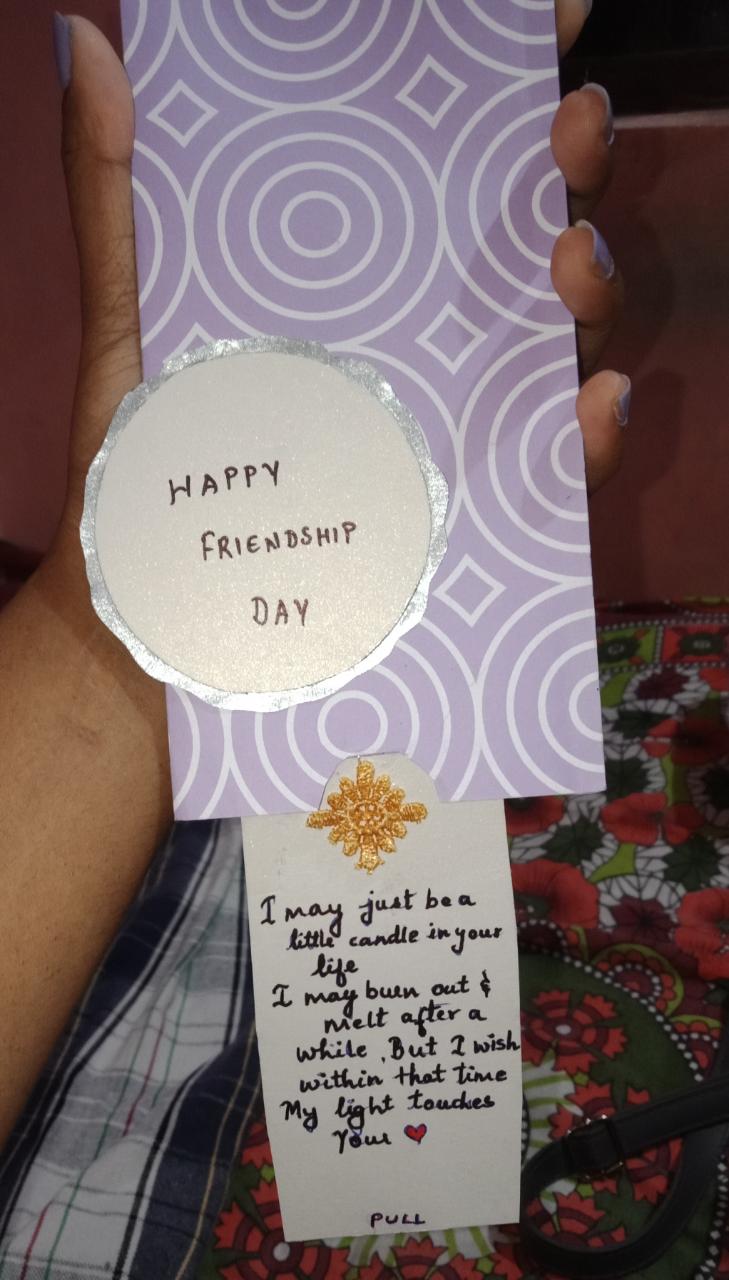 HAPPY
FRIENDSHIP
DAY
I may just be a
little candle in your
life
I may burn out &
melt after a
while , But I wish
within that time
My light touches
Your ❤
PULL